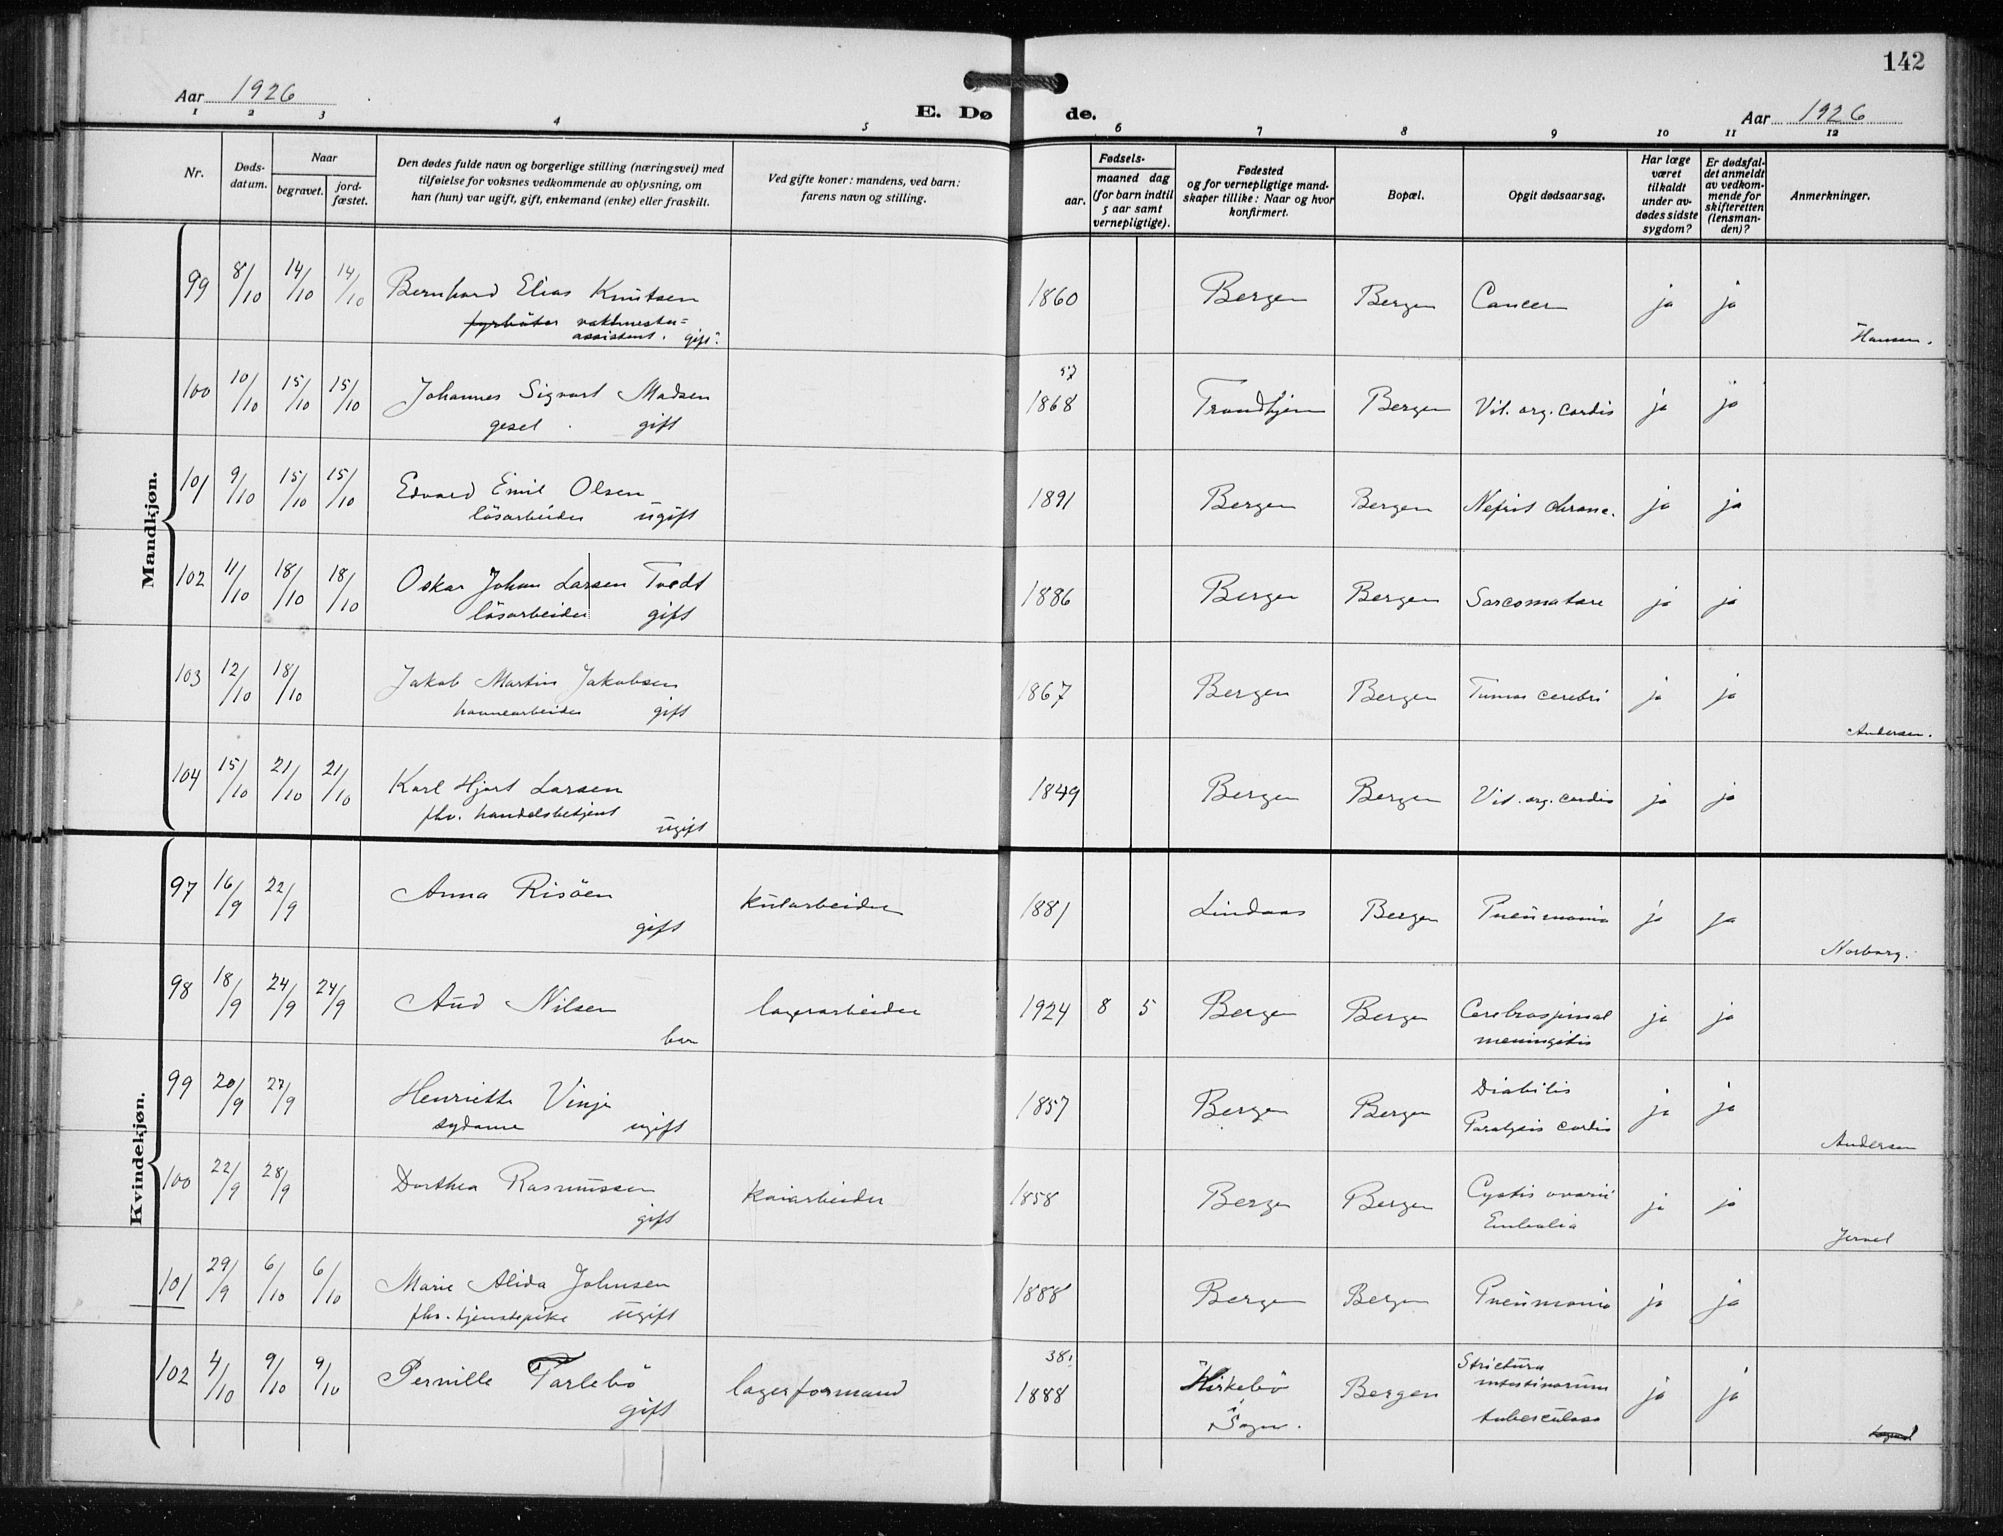 142
Aar 1926
E. Dø de.
Aar 1926
1 2 3 4 5 6 7 8 9 10 11 12
Nr.
Døds-
datum.
Naar
begravet.
jord-
fæstet.
Den dødes fulde navn og borgerlige stilling (næringsvei) med
tilføielse for voksnes vedkommende av oplysning, om
han (hun) var ugift, gift, enkemand (enke) eller fraskilt.
Ved gifte koner: mandens, ved barn:
farens navn og stilling.
Fødsels-
aar.
maaned dag
(for barn indtil
5 aar samt
vernepligtige).
Fødested
og for vernepligtige mand-
skaper tillike: Naar og hvor
konfirmert.
Bopæl.
Opgit dødsaarsag.
Har læge
været
tilkaldt
under av-
dødes sidste
sygdom?
Er dødsfal-
det anmeldt
av vedkom-
mende for
skifteretten
(lensman-
den)?
Anmerkninger.
Mandkjøn.
99 8/10 14/10 14/10 Bernhard Elias Knutsen 1860 Bergen Bergen Cancer ja ja
fyrbøter vaktmester=
assistent. gift.
Hansen.
57
100 10/10 15/10 15/10 Johannes Sigvart Madsen 1868 Trondhjem Bergen Vit. org. cordis ja ja
gesel gift
101 9/10 15/10 15/10 Edvard Emil Olsen 1891 Bergen Bergen Nefrit chronc. ja ja
løsarbeider ugift
102 11/10 18/10 18/10 Oskar Johan Larsen Tvedt 1886 Bergen Bergen Sarcomatose ja ja
løsarbeider gift
103 12/10 18/10 Jakob Martin Jakobsen 1867 Bergen Bergen Tumor cerebri ja ja
havnearbeider gift
Andersen.
104 15/10 21/10 21/10 Karl Hjort Larsen 1849 Bergen Bergen Vit. org. cordis ja ja
fhv. handelsbetjent ugift
Kvindekjøn.
97 16/9 22/9 Anna Risøen kularbeider 1881 Lindaas Bergen Pneumonia ja ja
gift
Norborg.
98 18/9 24/9 24/9 Aud Nilsen lagerarbeider 1924 8 5 Bergen Bergen Cerebrospinal ja ja
barn meningitis
99 20/9 27/9 Henriette Vinje 1857 Bergen Bergen Diabitis ja ja
sydame ugift Paralysis cordis
Andersen
100 22/9 28/9 Dorthea Rasmussen kaiarbeider 1858 Bergen Bergen Cystis ovarii ja ja
gift Embolia
101 29/9 6/10 6/10 Marie Alida Johnsen 1888 Bergen Bergen Pneumonia ja ja
fhv. tjenestepike ugift
38.
102 4/10 9/10 9/10 Pernille Tarlebø lagerformand 1888 Kirkebø Bergen Strictura ja ja
gift Sogn. intestinorum
tuberculosa